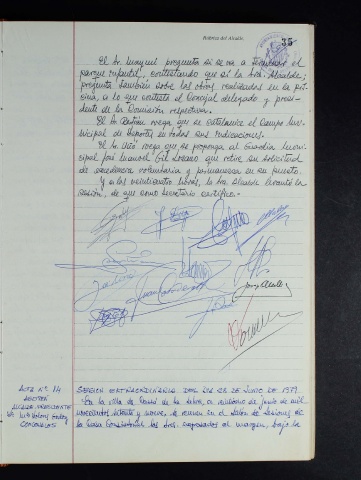 Rubrica del Alcalde,
35
El Sr. Miquel pregunta si se va a terminar el
parque infantil, contestando que sí la Sra. Alcalde;
pregunta también sobre las obras realizadas en la pis-
cina, a lo que contesta el Concejal delegado y presi-
dente de la Comisión respectiva.
El Sr. ruega que se establezca el Campo Muni-
cipal de Deportes en todas sus indicaciones.
El Sr. Vicó ruega que se proponga al Guardia Muni-
cipal José Manuel Gil Lozano que retire su solicitud
de excedencia voluntaria y permanezca en su puesto.
Y a las veinticuatro horas, la Sra. Alcalde levantó la
sesión, de que como Secretario certifico.-
ACTA Nº 14
SESION EXTRAORDINARIA DEL DIA 28 DE JUNIO DE 1979.
En la villa de a veintiocho de junio de mil
novecientos setenta y nueve, se reunen en el salón de sesiones de
la Casa Consistorial los Sres. expresados al margen, bajo la
ALCALDE PRESIDENTE
CONCEJALES